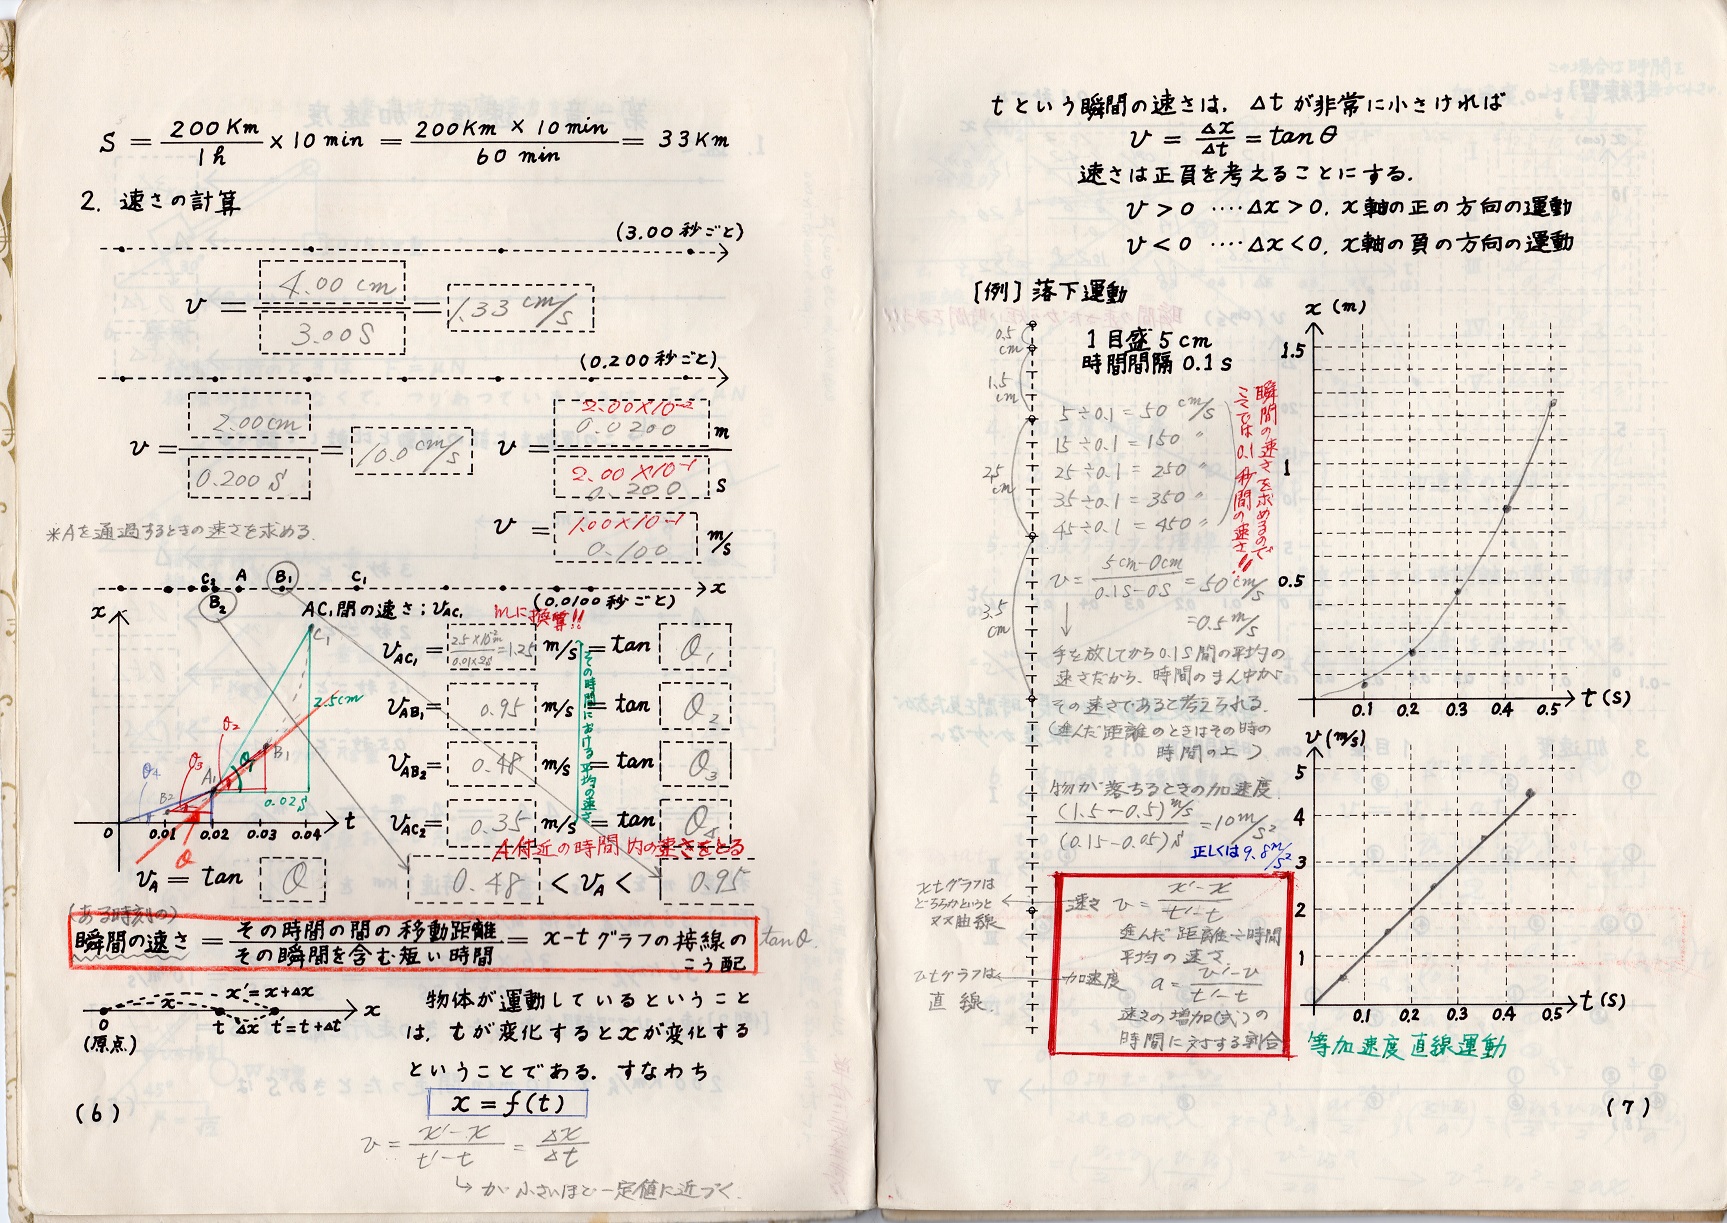 S = 200Km/1h × 10 min = 200Km × 10 min/60 min = 33Km
2. 速さの計算
(3.00秒ごと)
v = 4.00 cm/3.00 S = 1.33 cm/s
(0.200秒ごと)
v = 2.00cm/0.200 S = 10.0 cm/s
v = 2.00×10⁻² 0.0200 m/2.00×10⁻¹ 0.200 s
v = 1.00×10⁻¹ 0.100 m/s
※Aを通過するときの速さを求める.
C₂ A B₁ C₁ x
B₂ (0.0100秒ごと)
AC₁間の速さ; vAC₁ mに換算!!
x C₁ 2.5cm θ₂ θ₃ θ₄ A₁ B₁ B₂ θ 0.02S
0 0.01 0.02 0.03 0.04 t
θ
vAC₁ = 2.5×10⁻²m/0.01×2S = 1.25 m/s = tan θ₁
vAB₁ = 0.95 m/s = tan θ₂
vAB₂ = 0.48 m/s = tan θ₃
vAC₂ = 0.35 m/s = tan θ₄
その時間における平均の速さ
A付近の時間内の速さをとる
vA = tan θ 0.48 < vA < 0.95
(ある時刻の)
瞬間の速さ = その時間の間の移動距離/その瞬間を含む短い時間 = x-tグラフの接線のこう配 tanθ.
x x'=x+Δx x
0 t Δx t'=t+Δt
(原点)
物体が運動しているということ
は, tが変化するとxが変化する
ということである. すなわち
x = f(t)
v = x'-x/t'-t = Δx/Δt
↳ が小さいほど一定値に近づく.
(6)
tという瞬間の速さは, Δtが非常に小さければ
v = Δx/Δt = tanθ
速さは正負を考えることにする.
v > 0 ‥‥Δx>0, x軸の正の方向の運動
v < 0 ‥‥Δx<0, x軸の負の方向の運動
[例] 落下運動
1目盛5cm
時間間隔0.1s
0.5cm
1.5cm
25cm
3.5cm
5÷0.1 = 50 cm/s
15÷0.1 = 150 〃
25÷0.1 = 250 〃
35÷0.1 = 350 〃
45÷0.1 = 450 〃
瞬間の速さを求めるので
ここでは0.1秒間の速さ!!
v = 5cm-0cm/0.1S-0S = 50 cm/s
= 0.5 m/s
手を放してから0.1S間の平均の
速さだから、時間のまん中が
その速さであると考えられる.
(進んだ距離のときはその時の
時間の上)
物が落ちるときの加速度
(1.5-0.5) m/s/(0.15-0.05) s = 10 m/s²
正しくは9.8m/s²
xtグラフは
曲線
速さ v = x'-x/t'-t
進んだ距離と時間
平均の速さ
vtグラフは
直線
加速度 a = v'-v/t'-t
速さの増加(式)の
時間に対する割合
x (m)
1.5
1
0.5
0.1 0.2 0.3 0.4 0.5 t (s)
v (m/s)
5
4
3
2
1
0.1 0.2 0.3 0.4 0.5 t (s)
等加速度直線運動
(7)